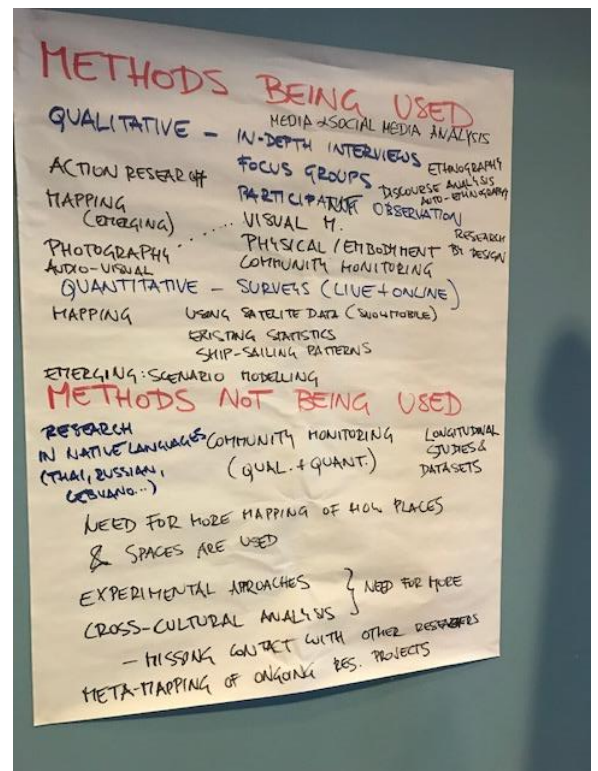 METHODS BEING USED
MEDIA & SOCIAL MEDIA ANALYSIS
QUALITATIVE – IN-DEPTH INTERVIEWS
ETHNOGRAPHY
ACTION RESEARCH FOCUS GROUPS
DISCOURSE ANALYSIS
AUTO-ETHNOGRAPHY
MAPPING PARTICIPANT OBSERVATION
(EMERGING) ...... VISUAL M.
RESEARCH
BY DESIGN
PHOTOGRAPHY PHYSICAL / EMBODIMENT
AUDIO-VISUAL COMMUNITY MONITORING
QUANTITATIVE – SURVEYS (LIVE + ONLINE)
MAPPING USING SATELITE DATA (SNOWMOBILE)
EXISTING STATISTICS
SHIP-SAILING PATTERNS
EMERGING: SCENARIO MODELLING
METHODS NOT BEING USED
RESEARCH
IN NATIVE LANGUAGES
(THAI, RUSSIAN,
CEBUANO...)
COMMUNITY MONITORING
(QUAL. + QUANT.)
LONGITUDINAL
STUDIES &
DATASETS
NEED FOR MORE MAPPING OF HOW PLACES
& SPACES ARE USED
EXPERIMENTAL APROACHES } NEED FOR MORE
CROSS-CULTURAL ANALYSIS
– MISSING CONTACT WITH OTHER
META-MAPPING OF ONGOING RES. PROJECTS